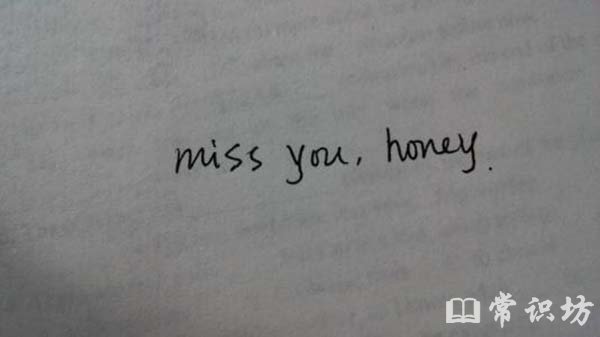 miss you, honey.
常识坊